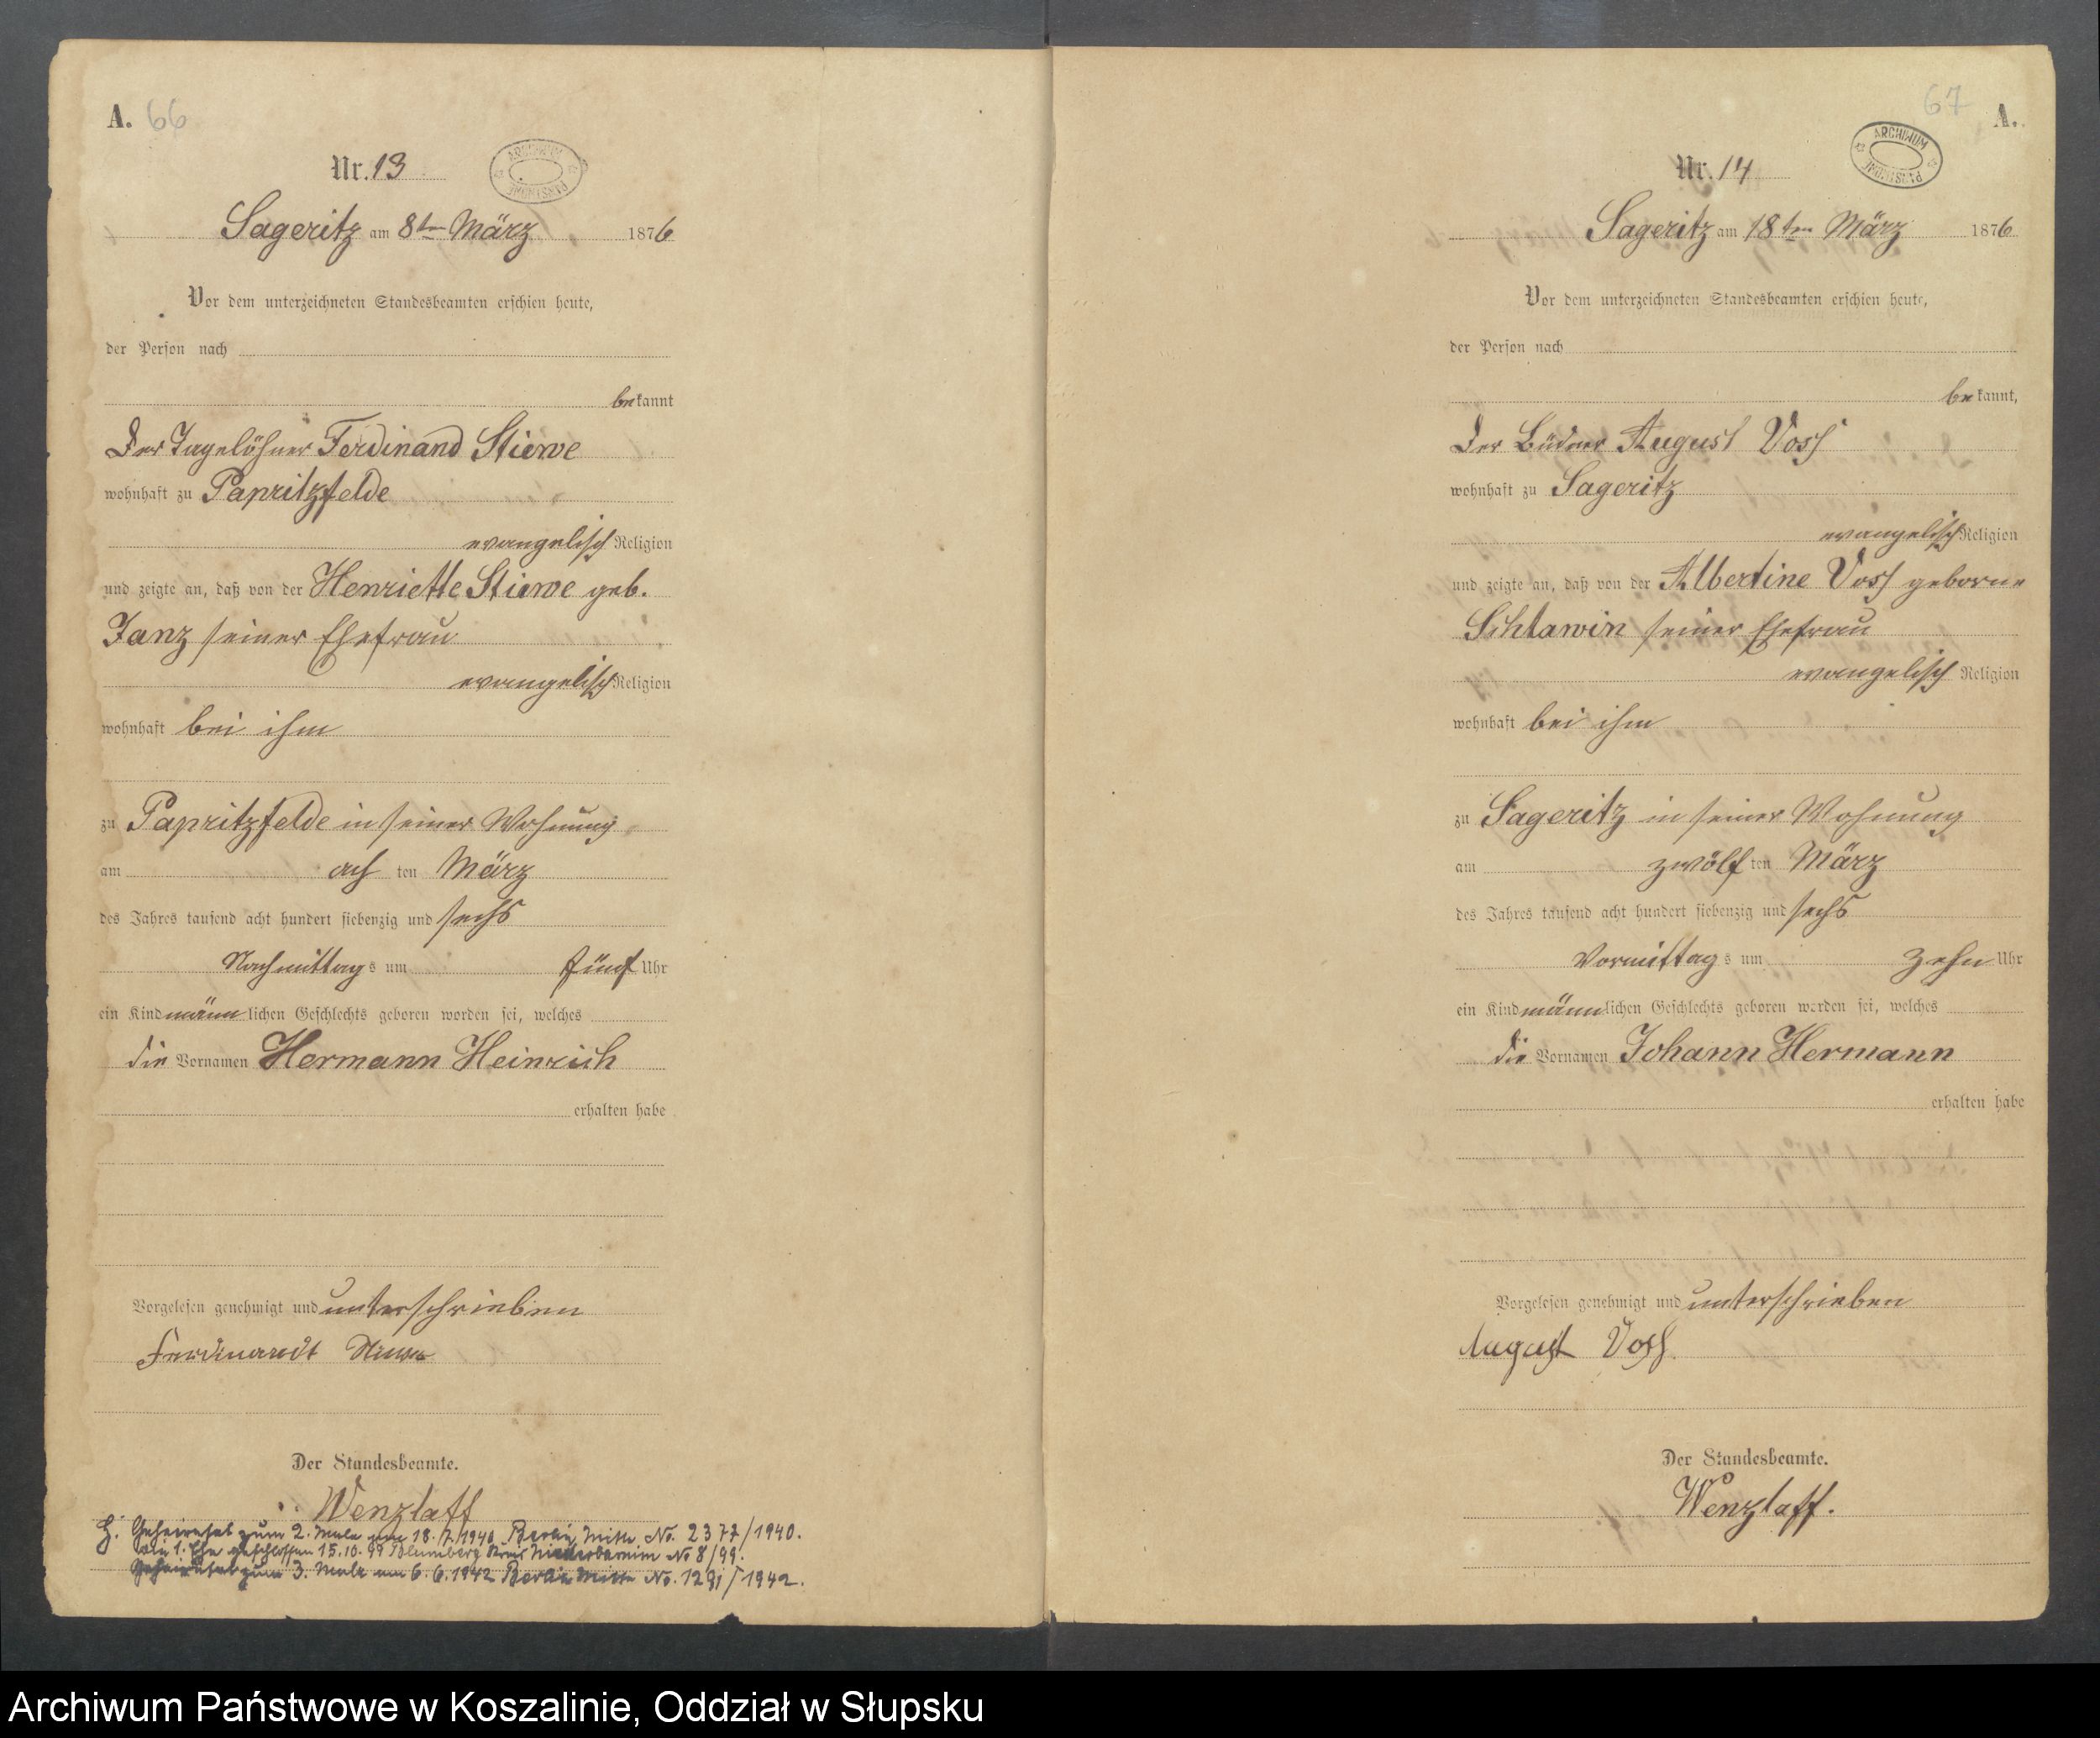 A. 66
Nr. 13
ARCHIWUM PAŃSTWOWE
Sageritz am 8ten März 1876
Vor dem unterzeichneten Standesbeamten erschien heute,
der Person nach
bekannt
Der Tagelöhner Ferdinand Stiewe
wohnhaft zu Papritzfelde
evangelisch Religion
und zeigte an, daß von der Henriette Stiewe geb.
Janz seiner Ehefrau
evangelisch Religion
wohnhaft bei ihm
zu Papritzfelde in seiner Wohnung
am ach ten März
des Jahres tausend acht hundert siebenzig und sechs
Nachmittags um fünf Uhr
ein Kind männlichen Geschlechts geboren worden sei, welches
die Vornamen Hermann Heinrich
erhalten habe
Vorgelesen genehmigt und unterschrieben
Ferdinandt Stiewe
Der Standesbeamte.
Wenzlaff
H: Geheiratet zum 2. Male am 18.7.1940 Berlin Mitte No. 2377/1940.
die 1. Ehe geschlossen 15.10.99 Blumberg Kreis Niederbarnim No 8/99.
Geheiratet zum 3. Male am 6.6.1942 Berlin Mitte No. 1291/1942.
67 A.
Nr. 14
ARCHIWUM PAŃSTWOWE
Sageritz am 18ten März 1876
Vor dem unterzeichneten Standesbeamten erschien heute,
der Person nach
bekannt,
Der Büdner August Voss
wohnhaft zu Sageritz
evangelisch Religion
und zeigte an, daß von der Albertine Voss geborne
Schlawin seiner Ehefrau
evangelisch Religion
wohnhaft bei ihm
zu Sageritz in seiner Wohnung
am zwölf ten März
des Jahres tausend acht hundert siebenzig und sechs
Vormittags um zehn Uhr
ein Kind männlichen Geschlechts geboren worden sei, welches
die Vornamen Johann Hermann
erhalten habe
Vorgelesen genehmigt und unterschrieben
August Voss.
Der Standesbeamte.
Wenzlaff.
Archiwum Państwowe w Koszalinie, Oddział w Słupsku